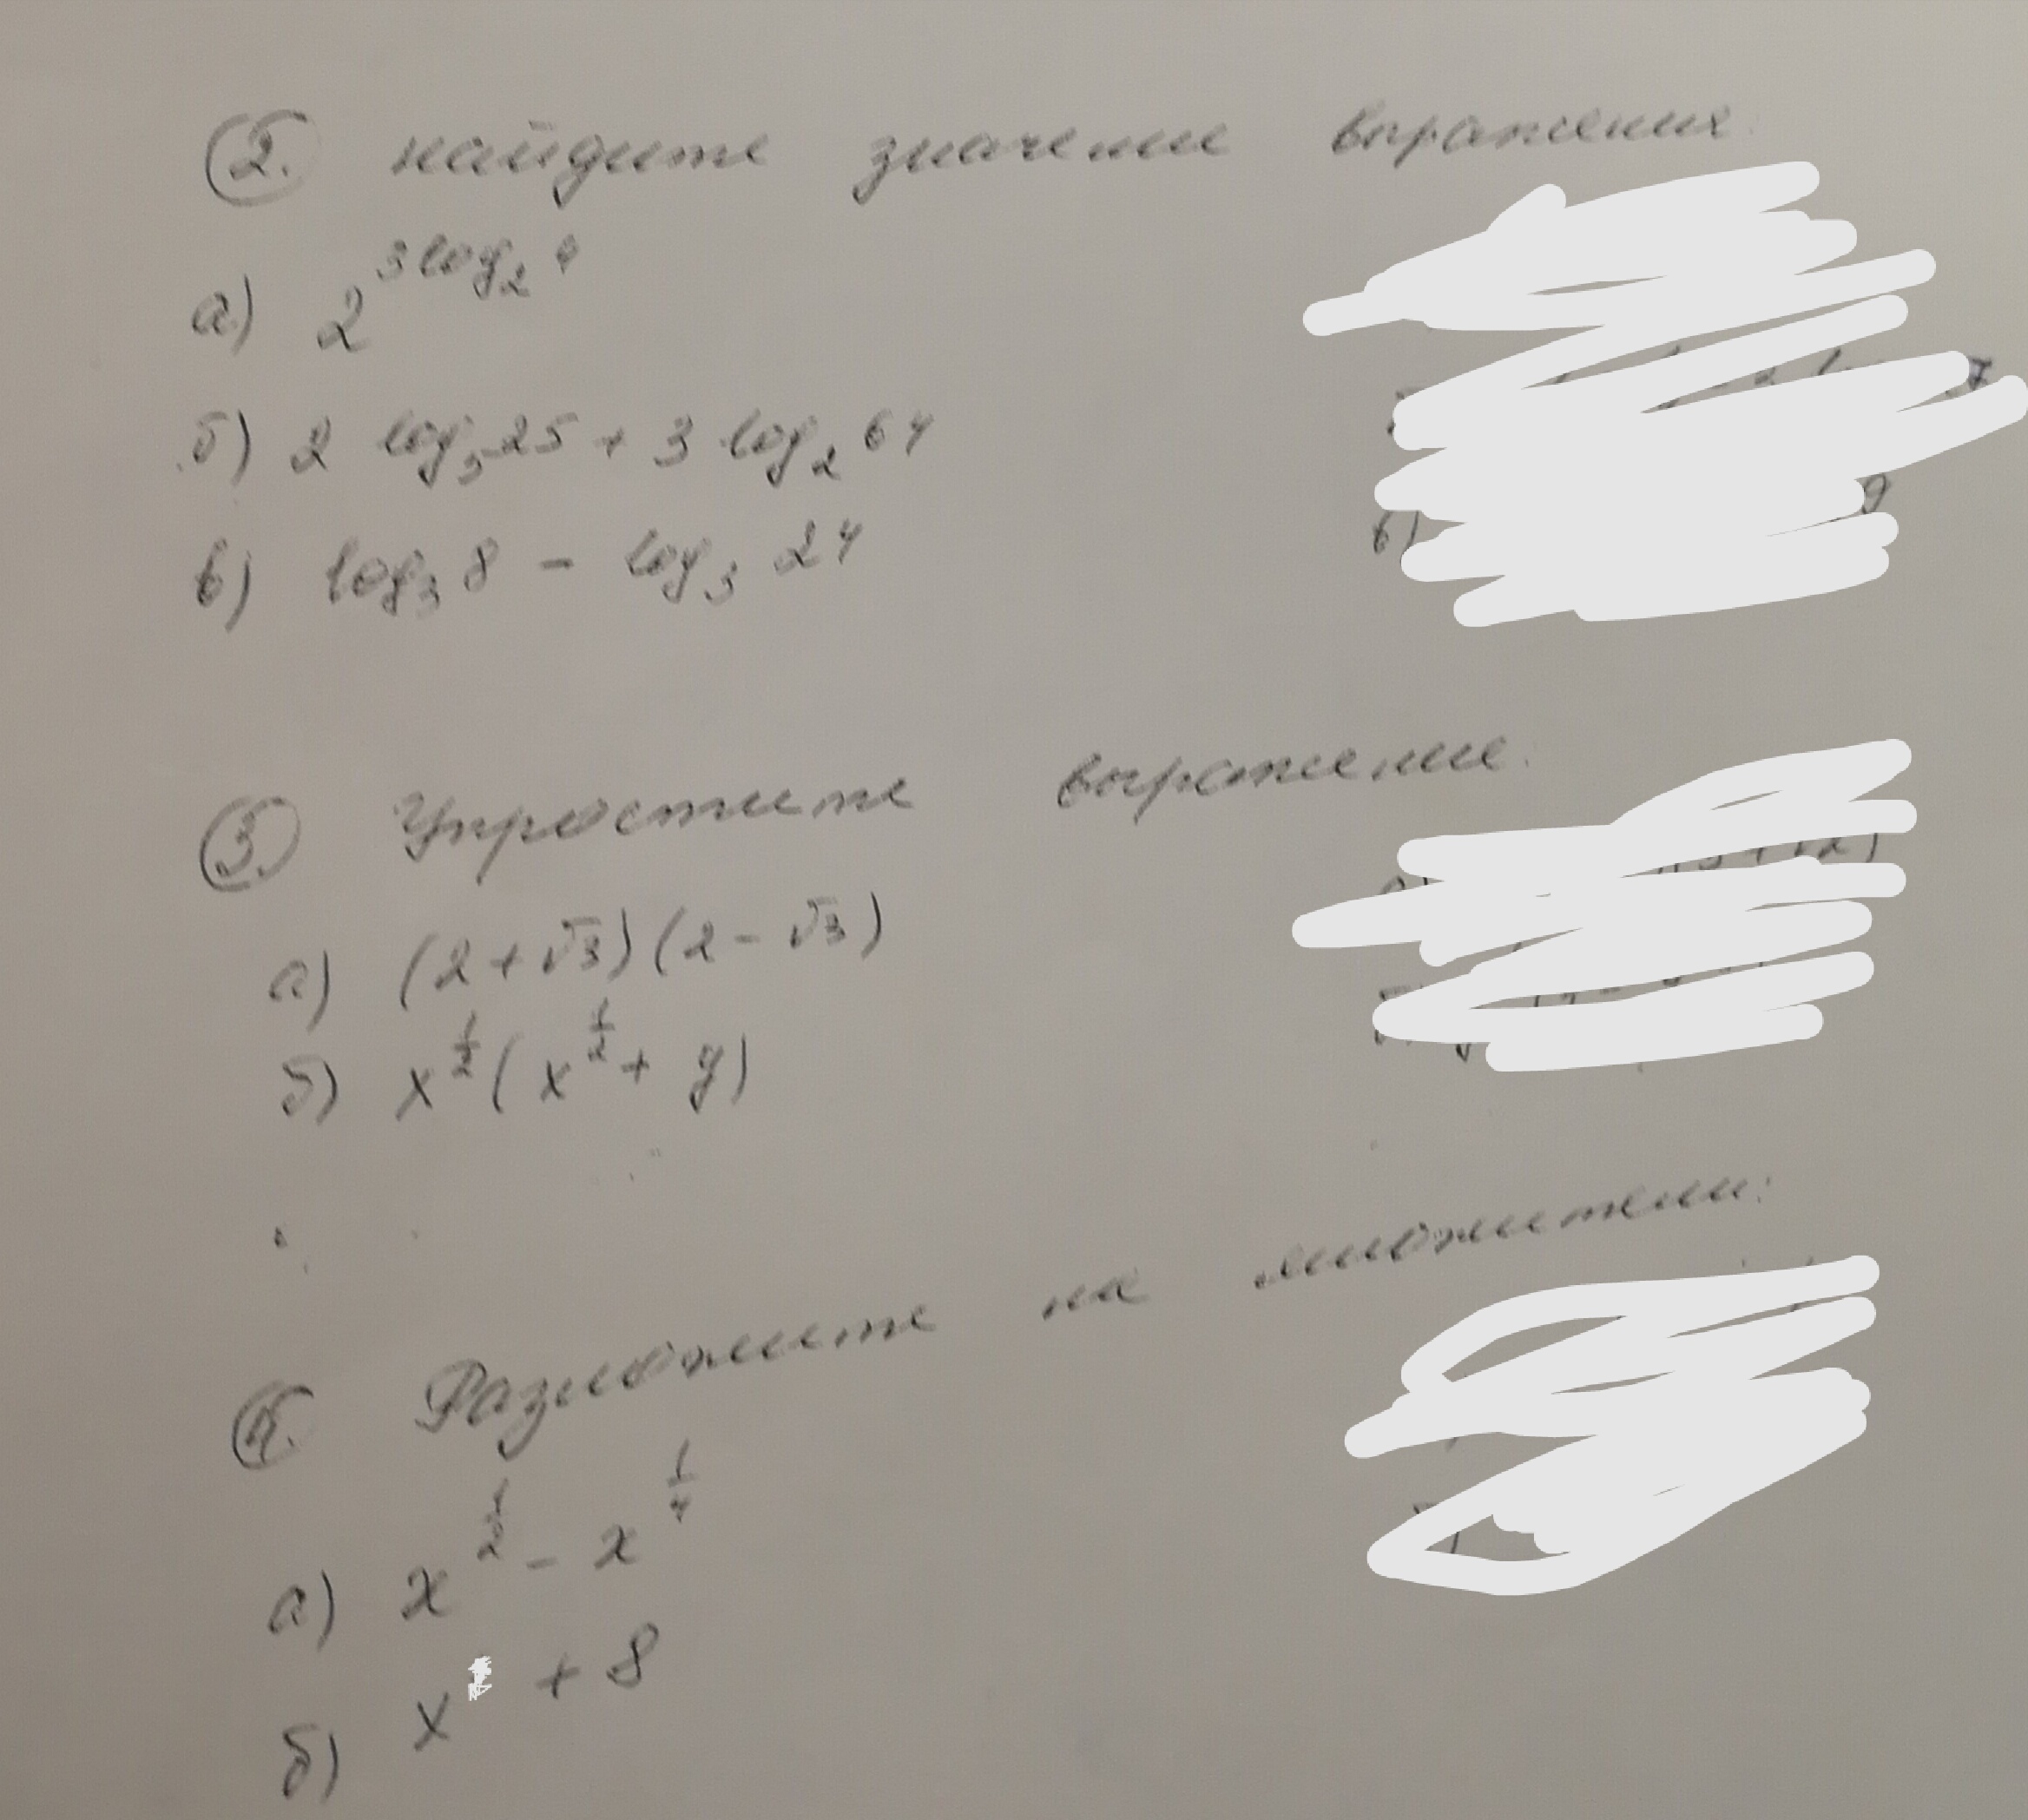 2. найдите значение выражения.
а) 2^{3 log_2 4}
б) 2 log_5 25 + 3 log_2 64
в) log_3 8 - log_3 24
в)
3. Упростите выражение.
а) (2 + √3)(2 - √3)
б) x^{1/2} (x^{1/2} + y)
4. Разложите на множители:
а) x^{1/2} - x^{1/4}
б) x + 8